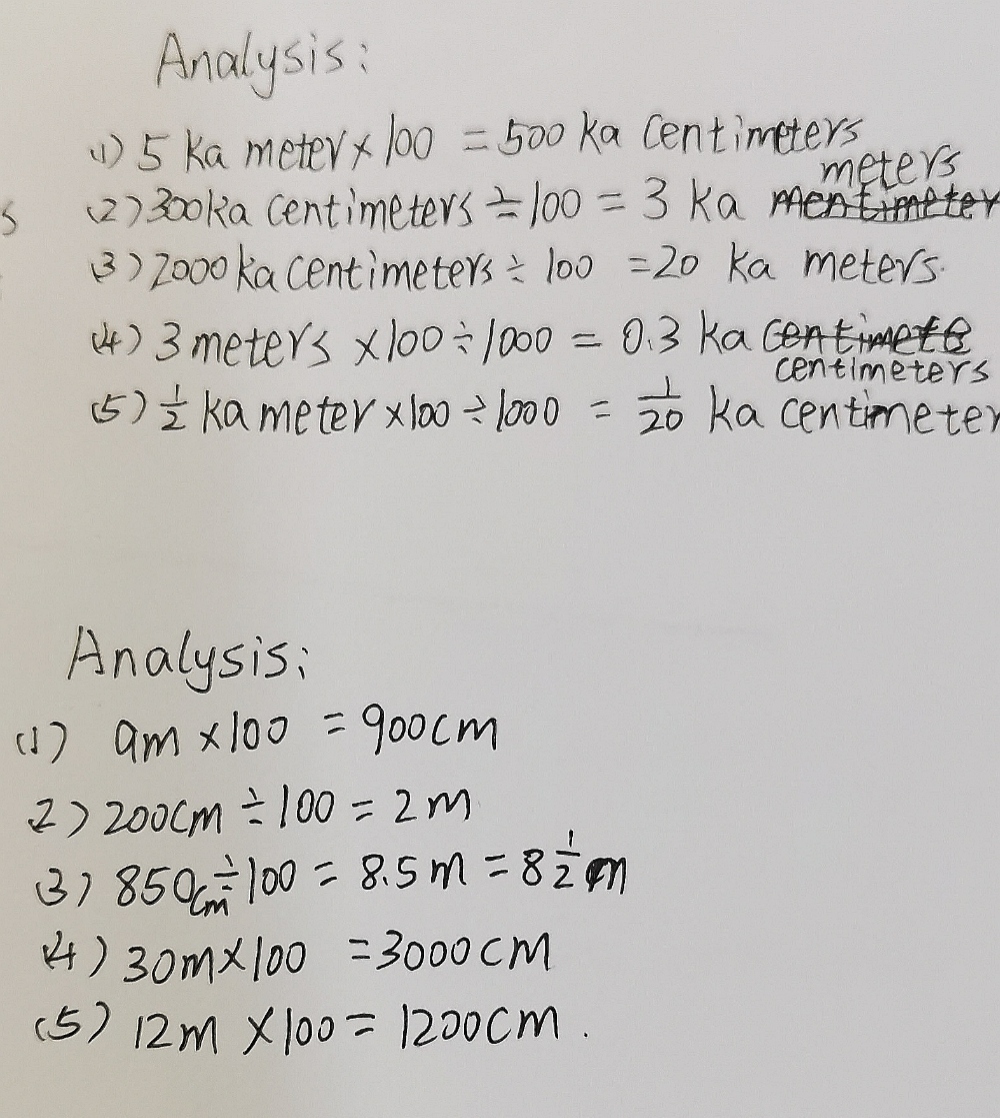 Analysis:
(1) 5 ka meter × 100 = 500 ka centimeters
s (2) 300 ka centimeters ÷ 100 = 3 ka meters
(3) 2000 ka centimeters ÷ 100 = 20 ka meters.
(4) 3 meters × 100 ÷ 1000 = 0.3 ka centimeters
(5) 1/2 ka meter × 100 ÷ 1000 = 1/20 ka centimeter
Analysis:
(1) 9m × 100 = 900cm
2) 200cm ÷ 100 = 2m
(3) 850cm ÷ 100 = 8.5m = 8 1/2 m
(4) 30m × 100 = 3000cm
(5) 12m × 100 = 1200cm.